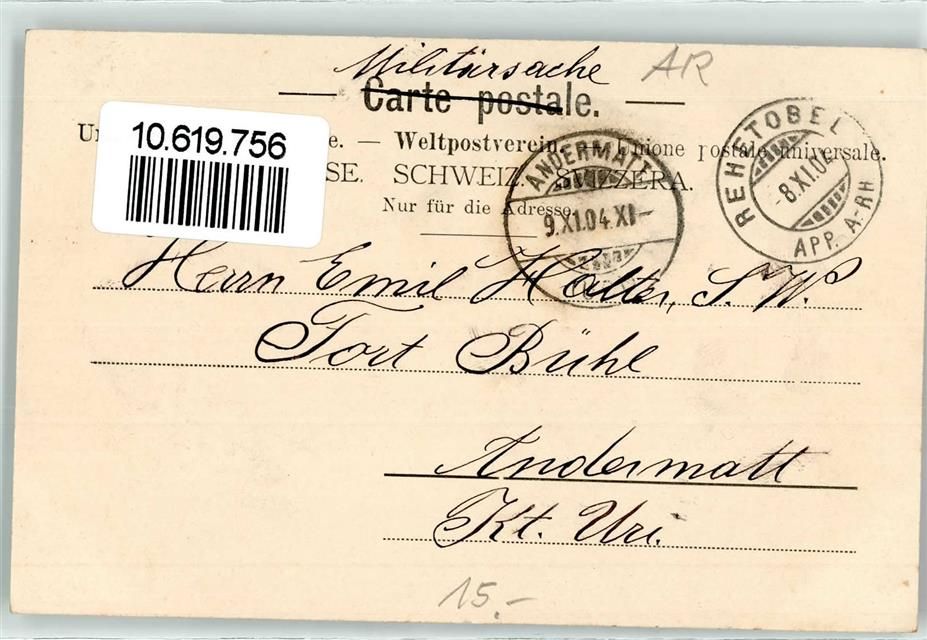 Militärsache AR
Carte postale.
10.619.756
Weltpostverein. — Unione postale universale.
SCHWEIZ. SVIZZERA.
Nur für die Adresse.
ANDERMATT
9.XI.04.XI-
REHETOBEL
-8.XI.04
APP. A-RH
Herrn Emil Holter, S. W.P
Fort Bühl
Andermatt
Kt. Uri.
15.-